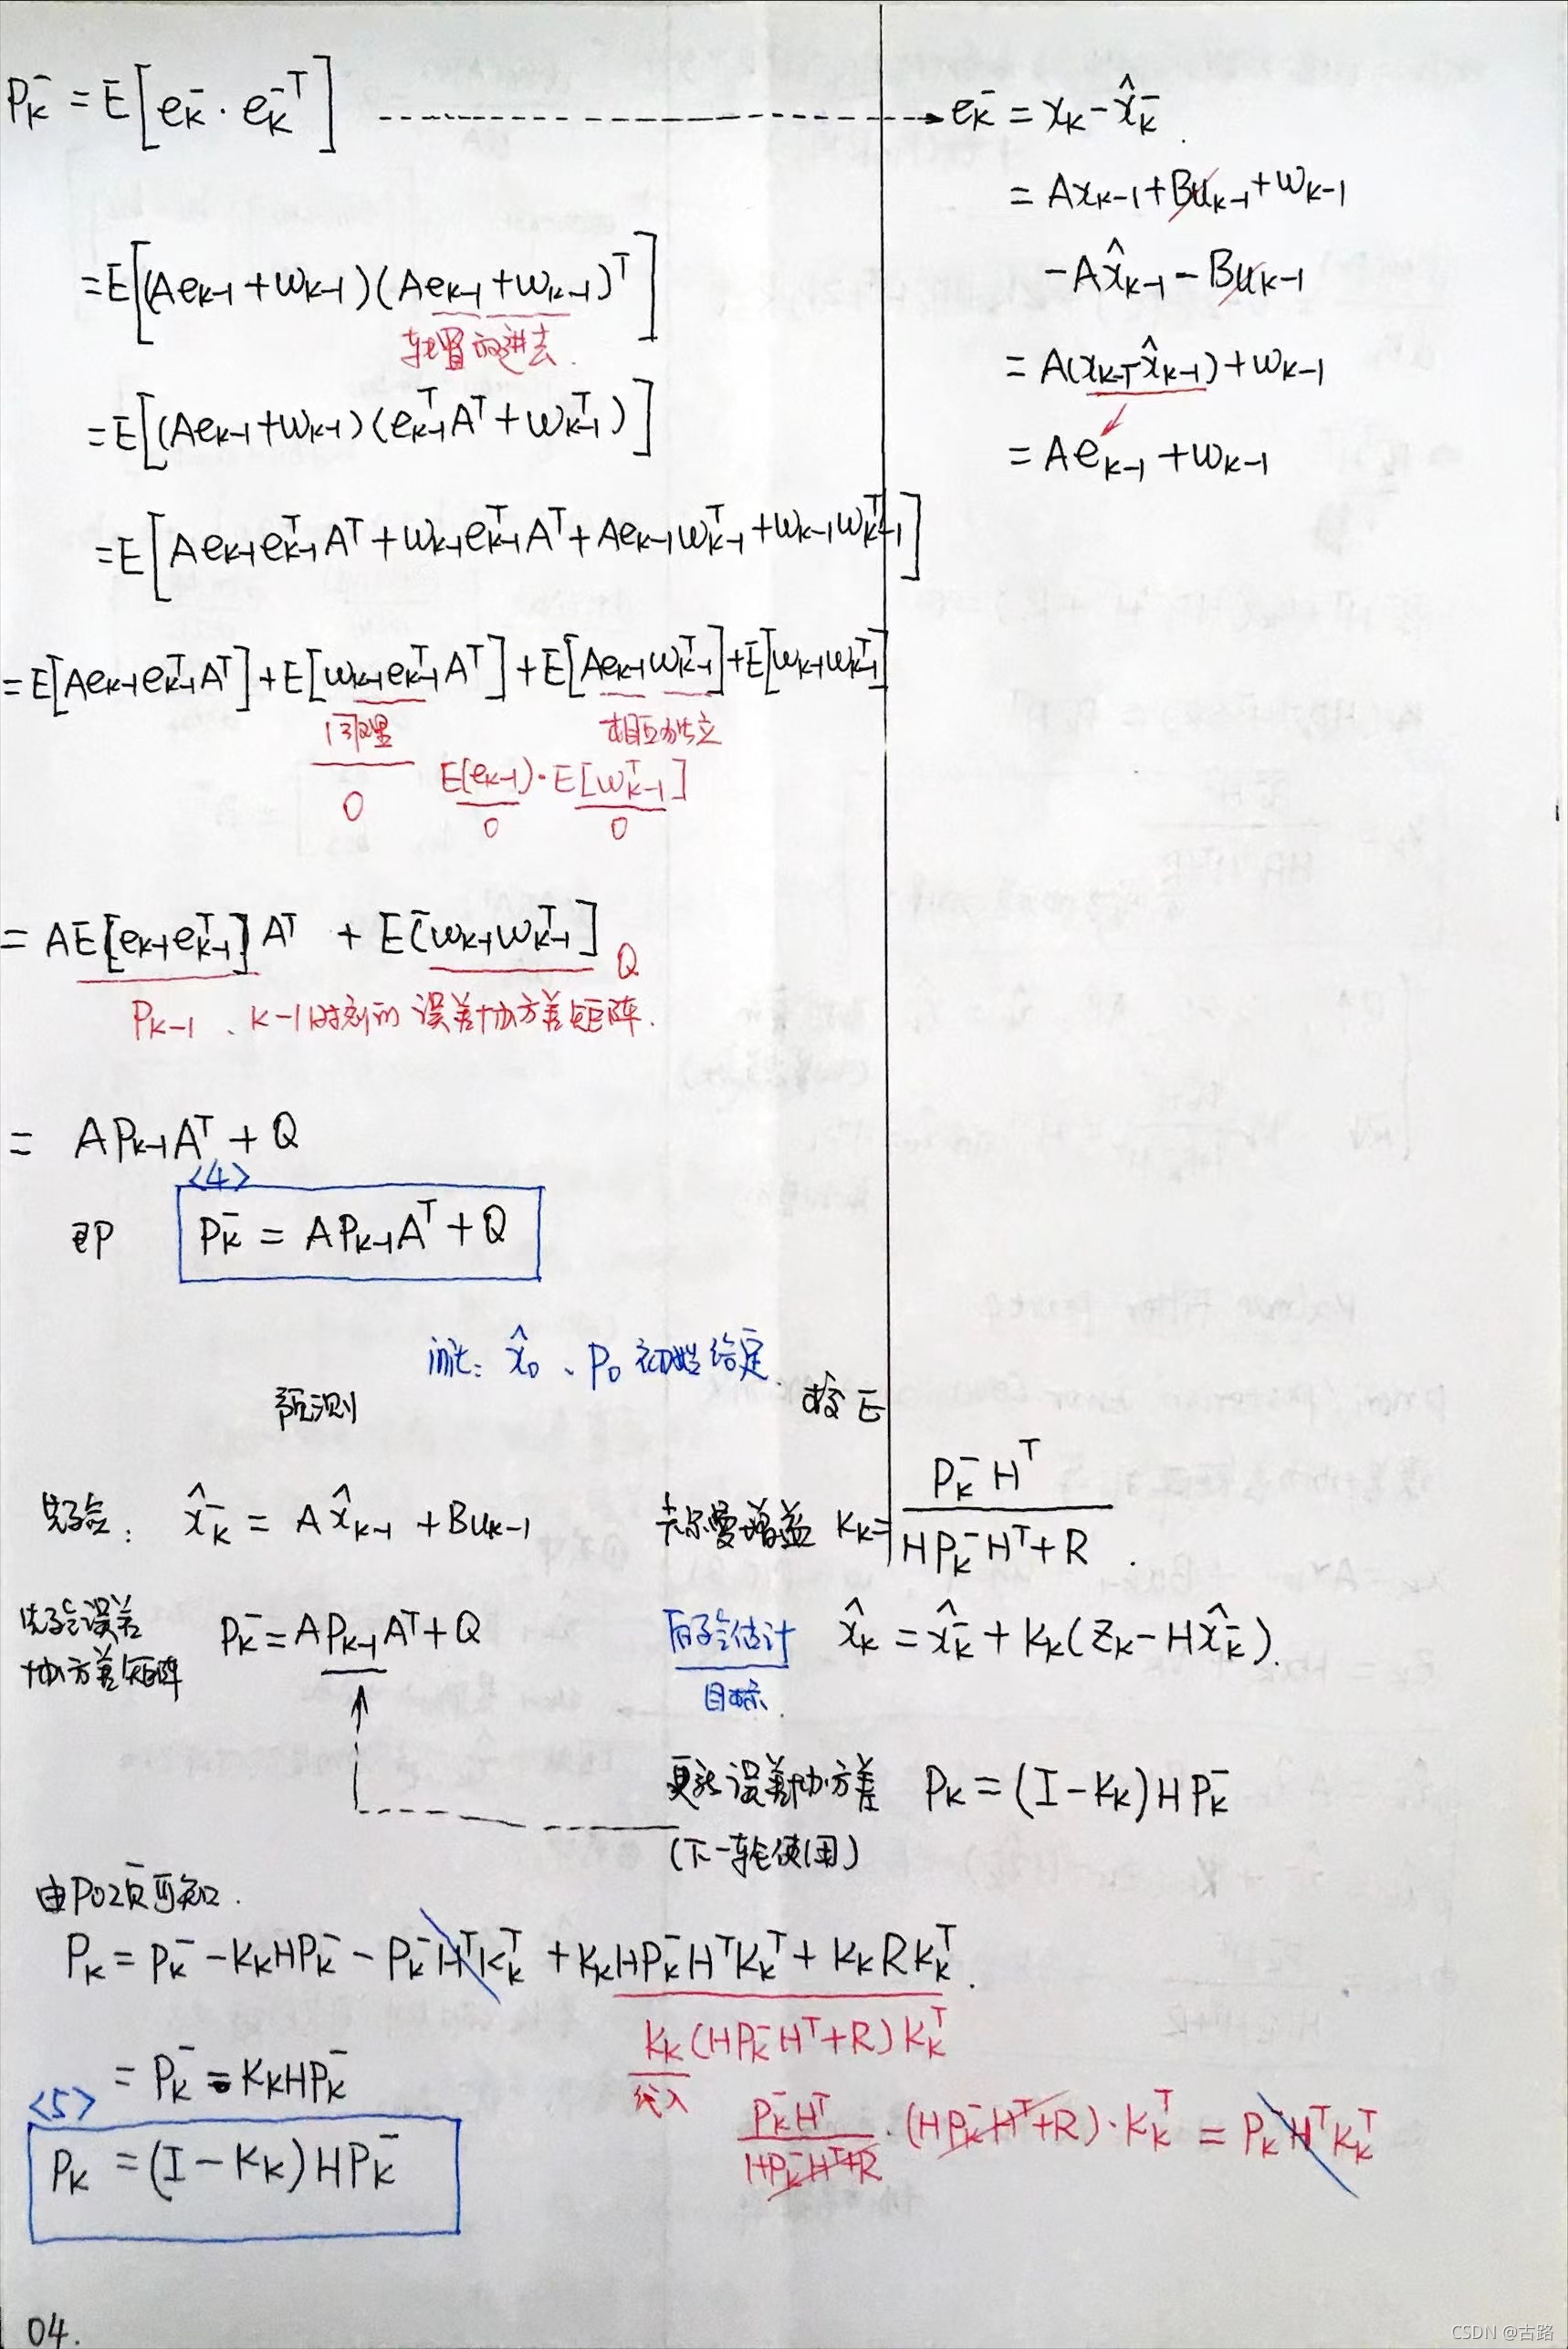 P_k^- = E[e_k^- · e_k^{-T}] ⇢ e_k^- = x_k - x̂_k^-
= Ax_{k-1} + Bu_{k-1} + w_{k-1}
- Ax̂_{k-1} - Bu_{k-1}
= A(x_{k-1} - x̂_{k-1}) + w_{k-1}
= Ae_{k-1} + w_{k-1}
= E[(Ae_{k-1} + w_{k-1})(Ae_{k-1} + w_{k-1})^T]
转置放进去.
= E[(Ae_{k-1} + w_{k-1})(e_{k-1}^T A^T + w_{k-1}^T)]
= E[Ae_{k-1}e_{k-1}^T A^T + w_{k-1}e_{k-1}^T A^T + Ae_{k-1}w_{k-1}^T + w_{k-1}w_{k-1}^T]
= E[Ae_{k-1}e_{k-1}^T A^T] + E[w_{k-1}e_{k-1}^T A^T] + E[Ae_{k-1}w_{k-1}^T] + E[w_{k-1}w_{k-1}^T]
同理 相互独立
0 E[e_{k-1}] · E[w_{k-1}^T]
0 0
= AE[e_{k-1}e_{k-1}^T]A^T + E[w_{k-1}w_{k-1}^T] Q
P_{k-1}、k-1时刻的 误差协方差矩阵.
= AP_{k-1}A^T + Q
<4>
即 P_k^- = AP_{k-1}A^T + Q
init: x̂_0、P_0 初始给定.
预测 校正
先验: x̂_k^- = Ax̂_{k-1} + Bu_{k-1} 卡尔曼增益 K_k = P_k^- H^T / (HP_k^- H^T + R) .
先验误差协方差矩阵 P_k^- = AP_{k-1}A^T + Q
后验估计 x̂_k = x̂_k^- + K_k(z_k - Hx̂_k^-).
目标.
更新误差协方差 P_k = (I - K_k)HP_k^-
(下一轮使用)
由P02页可知.
P_k = P_k^- - K_kHP_k^- - P_k^- H^T K_k^T + K_kHP_k^- H^T K_k^T + K_kRK_k^T.
K_k(HP_k^- H^T + R)K_k^T
代入
= P_k^- - K_kHP_k^-
P_k^- H^T / (HP_k^- H^T + R) · (HP_k^- H^T + R) · K_k^T = P_k^- H^T K_k^T
<5>
P_k = (I - K_k)HP_k^-
04.
CSDN @古路